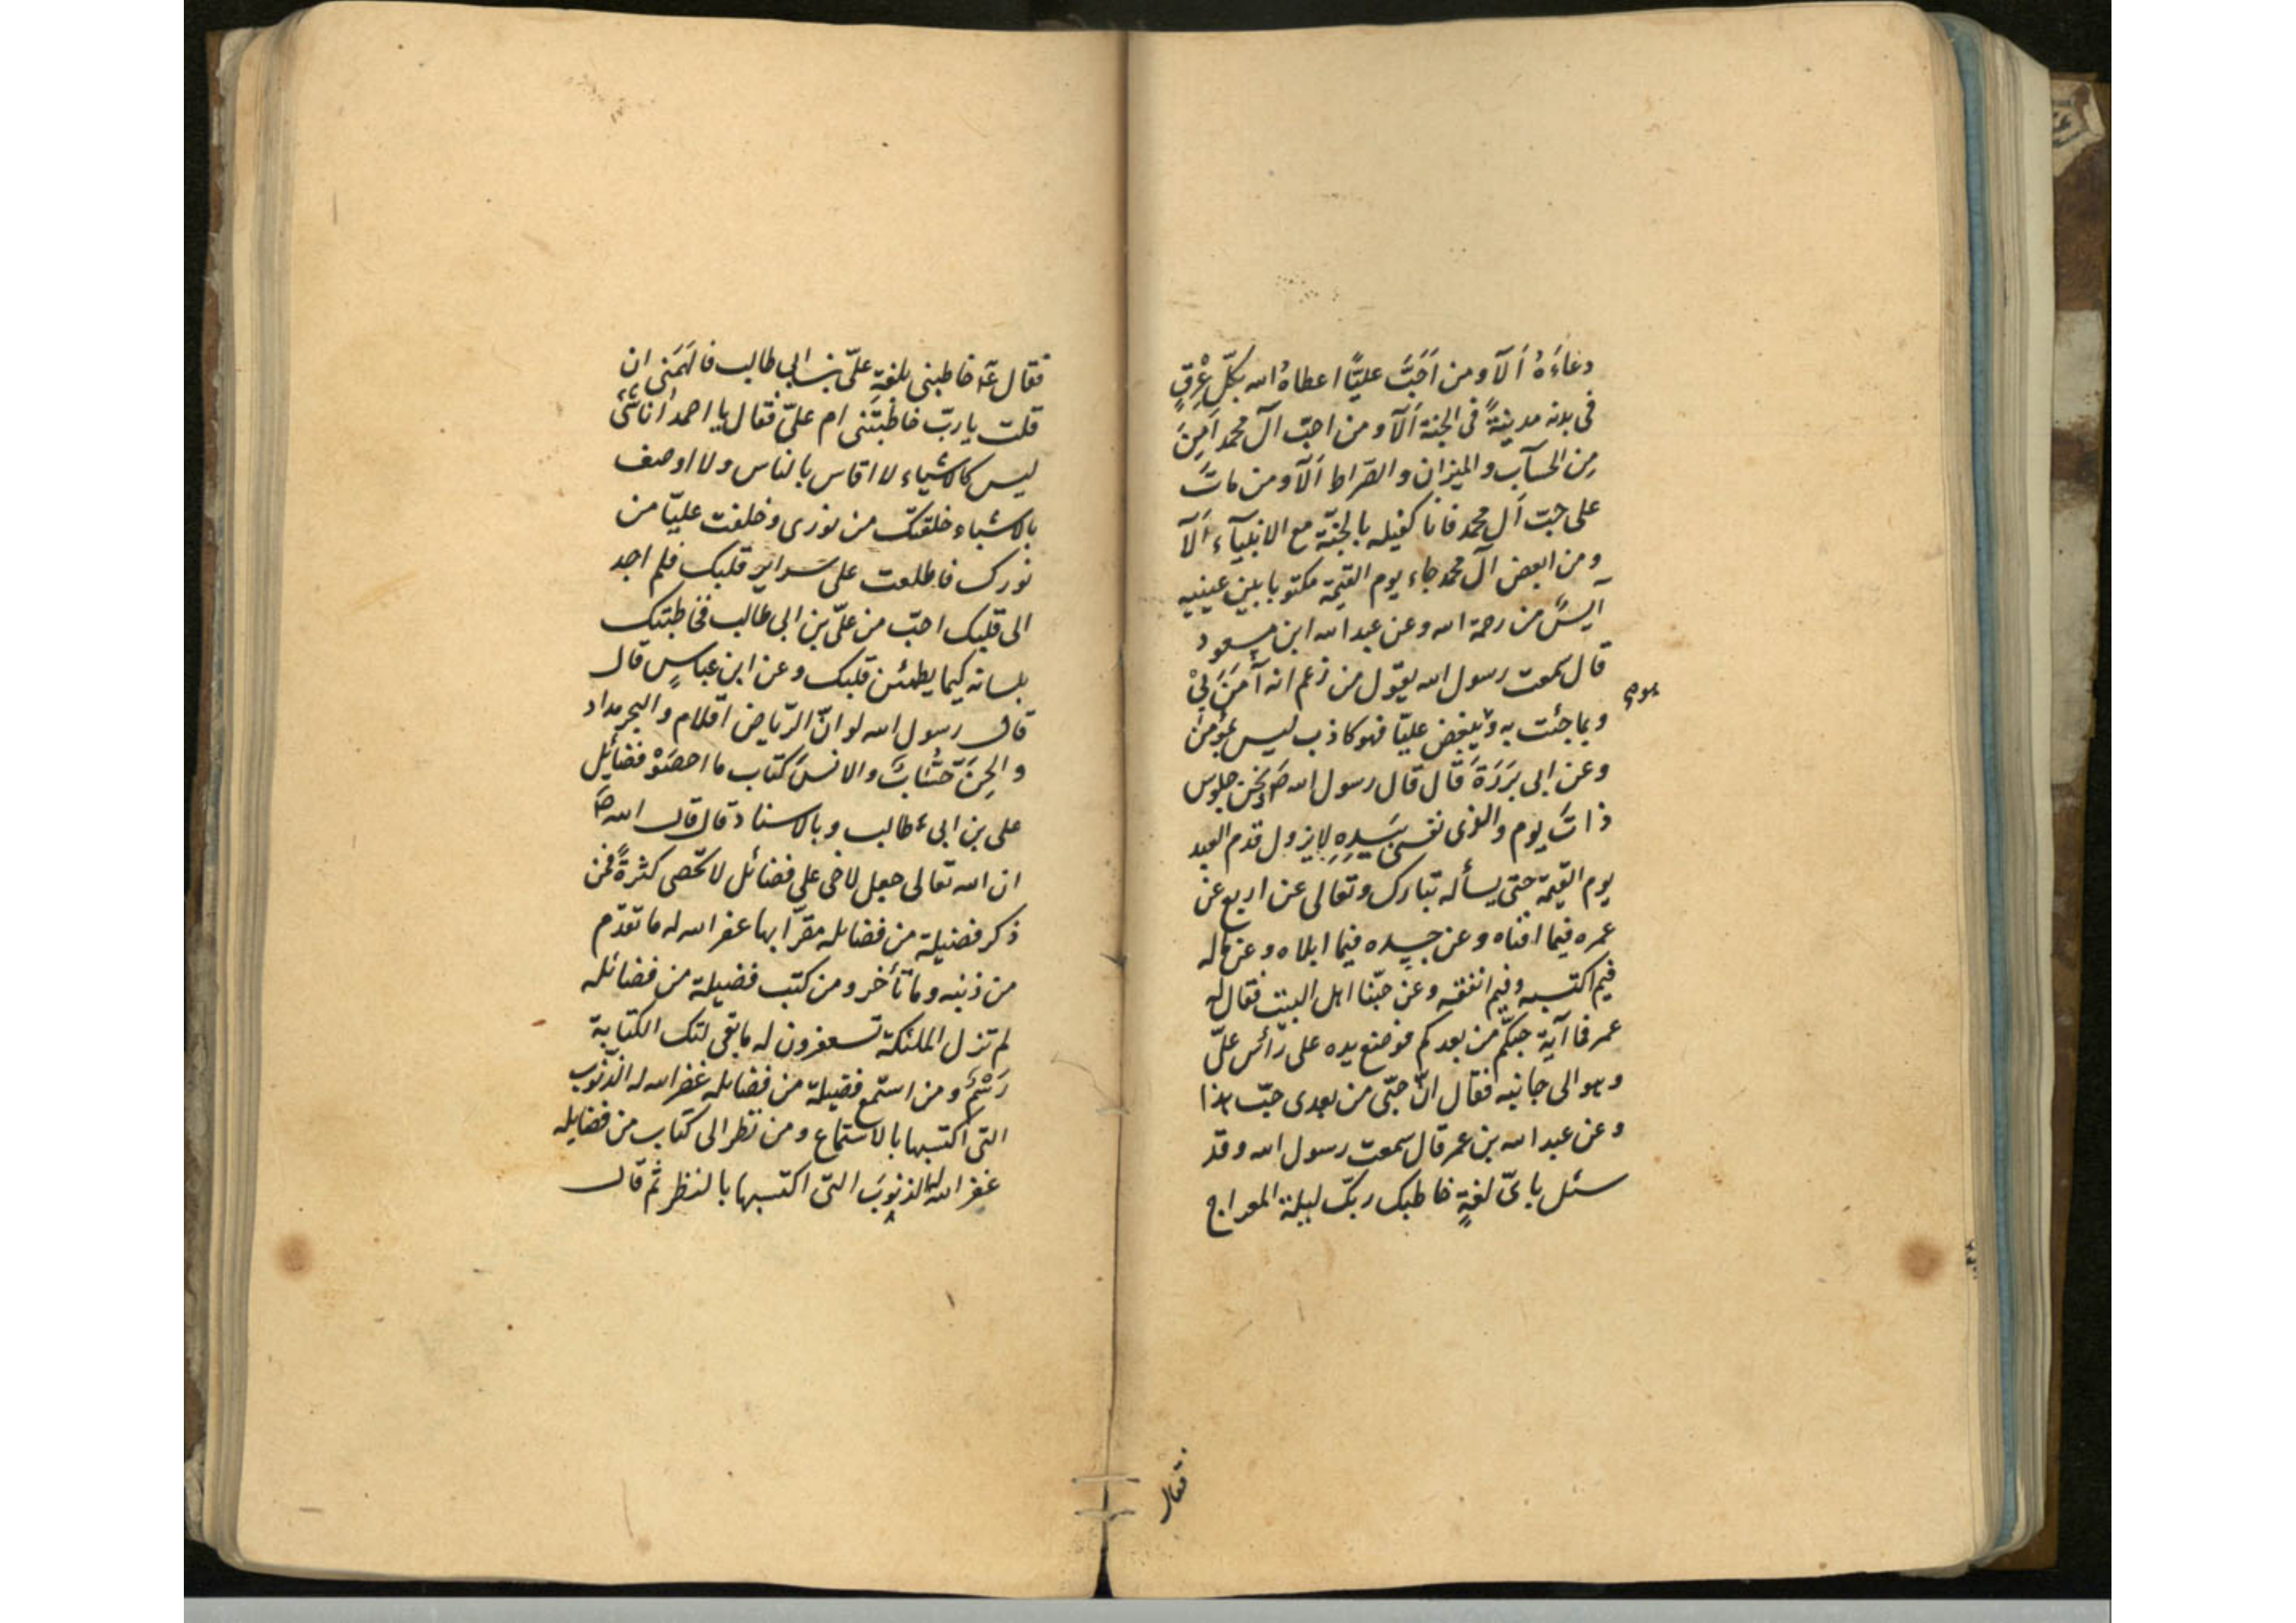 دعاءَهُ اَلآ ومن اَحَبَّ عليًّا اعطاهُ الله بكلّ عِرْقٍ
فى بدنه مدينةً فى الجنة اَلآ ومن احبّ آل محمد اَمِنَ
مِن الحسآب والميزان والصّراط اَلآ ومن ماتَ
على حبّ اَل محمد فانا كفيله بالجنّة مع الانبيآء اَلآ
ومن ابغض آل محمد جاء يوم القيمة مكتوبا بين عينيه
آيسٌ من رحمة الله وعن عبد الله ابن مسعود
قال سمعت رسول الله يقول من زعم انه آمَنَ بِيْ
وبما جئت به ويبغض عليّا فهو كاذب ليس بمؤمن
وعن ابى بَرَدَةَ قال قال رسول الله صَ ونحن جلوس
ذاتَ يوم والذى نفسى بِيَدِهِ لا يزول قدم العبد
يوم القيمة حتى يسأله تبارك وتعالى عن اربع عن
عمره فيما افناه وعن جسده فيما ابلاه وعن ماله
فيم اكتسبه وفيم انفقه وعن حبّنا اهل البيت فقال له
عمر فما آية حبّكم من بعدكم فوضع يده على رأس علىّ
وهو الى جانبه فقال انّ حبّى من بعدى حبّ هذا
وعن عبد الله بن عمر قال سمعت رسول الله وقد
سئل باىّ لغةٍ خاطبك ربّك ليلة المعراج
فقال
فقال عَ خاطبنى بلغةِ علىّ بن ابى طالب فالهَمَنى ان
قلت يا ربّ خاطبتَنى ام علىّ فقال يا احمد انا شىء
ليس كالاشياء لا اقاس بالناس ولا اوصف
بالاشياء خلقتك من نورى وخلقت عليّا من
نورك فاطلعت على سراير قلبك فلم اجد
الى قلبك احبّ من علىّ بن ابى طالب فخاطبتك
بلسانه كيما يطمئن قلبك وعن ابن عباسٍ قال
قال رسول الله لو انّ الرّياض اقلام والبحر مداد
والجِنَّ حُسّابٌ والانسَ كتاب ما احصَوْ فضايل
على بن ابى طالب وبالاسناد قال قال الله صَ
ان الله تعالى جعل لاخى على فضائل لا تحصى كثرةً فمن
ذكر فضيلة من فضايله مقرّا بها غفر الله له ما تقدّم
من ذنبه وما تأخر ومن كتب فضيلة من فضائله
لم تزل الملئكة تستغفرون له ما بقى لتلك الكتابة
رَسْمٌ ومن استمع فضيلة من فضايله غفر الله له الذّنوب
التى اكتسبها بالاستماع ومن نظر الى كتاب من فضايله
غفر الله له الذنوبَ التى اكتسبها بالنظر ثم قال